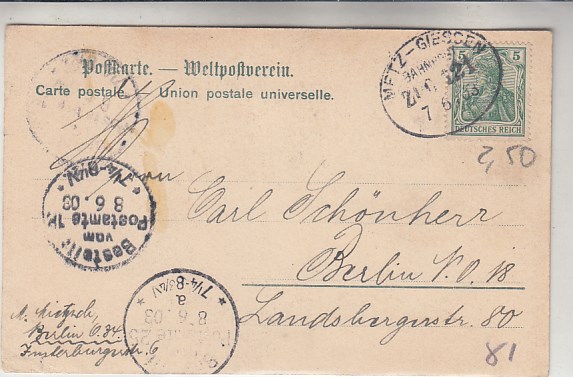 Postkarte. — Weltpostverein.
Carte postale. — Union postale universelle.
METZ-GIESSEN
BAHNPOST
ZUG 521
7 6 03
5
DEUTSCHES REICH
2,50
Herrn
Carl Schönherr
Berlin N.O. 18
Landsbergerstr. 80
Bestellt
vom
Postamte
8 6. 03
7¼-8½V
7¼-8½V
a
8. 6. 03
Berlin O. 34
Insterburgstr. 6
81